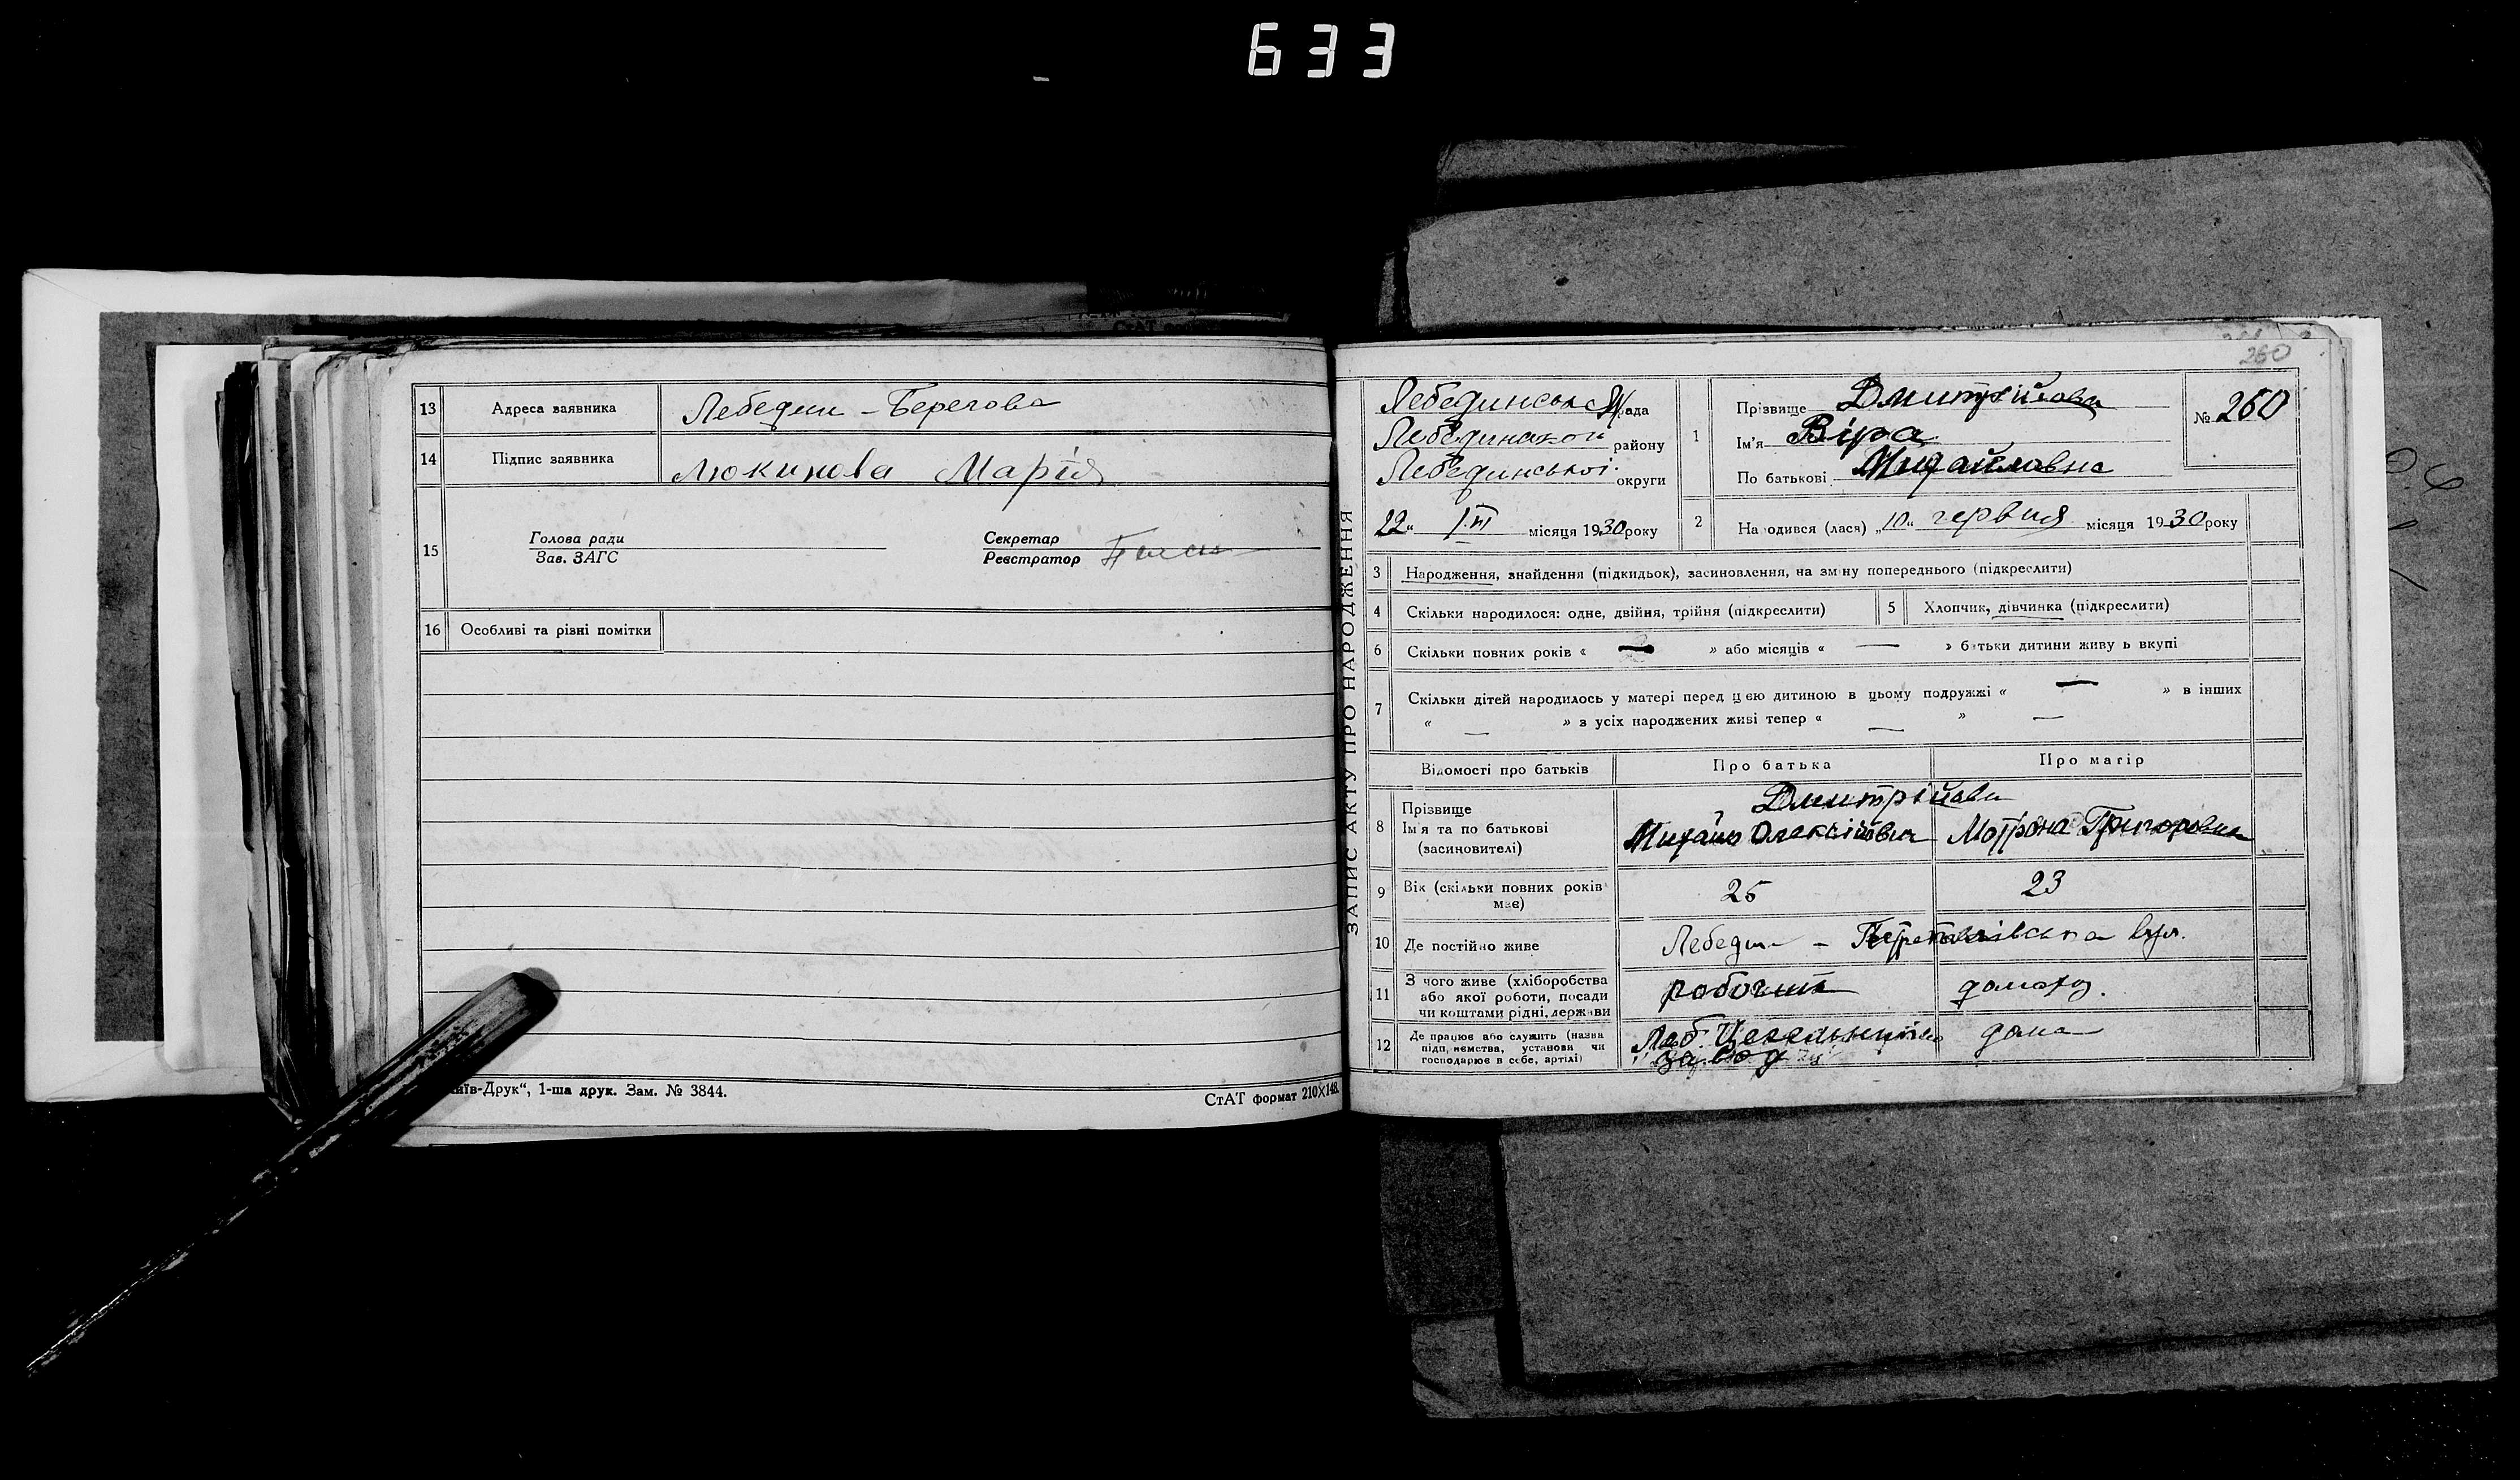 633
13 Адреса заявника Лебедин - Берегова
14 Підпис заявника Люкинова Марія
15 Голова ради Секретар
Зав. ЗАГС Реєстратор
16 Особливі та різні помітки
иїв-Друк“, 1-ша друк. Зам. № 3844.
СтАТ формат 210×148.
260
ЗАПИС АКТУ ПРО НАРОДЖЕННЯ
Лебединська рада
Лебединської району
Лебединської округи
22 місяця 1930 року
1 Прізвище Дмитрійова № 260
Ім'я Віра
По батькові Михайловна
2 На одився (лася) „10“ червня місяця 1930 року
3 Народження, знайдення (підкидьок), засиновлення, на зміну попереднього (підкреслити)
4 Скільки народилося: одне, двійня, трійня (підкреслити) 5 Хлопчик, дівчинка (підкреслити)
6 Скільки повних років « — » або місяців « — » батьки дитини живу ь вкупі
7 Скільки дітей народилось у матері перед цією дитиною в цьому подружжі « — » в інших
« — » з усіх народжених живі тепер « — » —
Відомості про батьків Про батька Про матір
8 Прізвище Дмитрійови
Ім'я та по батькові Михайло Олексійович Мотрона Григоровна
(засновителі)
9 Вік (скільки повних років має) 25 23
10 Де постійно живе Лебедин - вул.
11 З чого живе (хліборобства робочий домогос.
або якої роботи, посади
чи коштами рідні, держави
12 Де працює або служить (назва Леб. дома
підприємства, установи чи завод
господарює в себе, артілі)